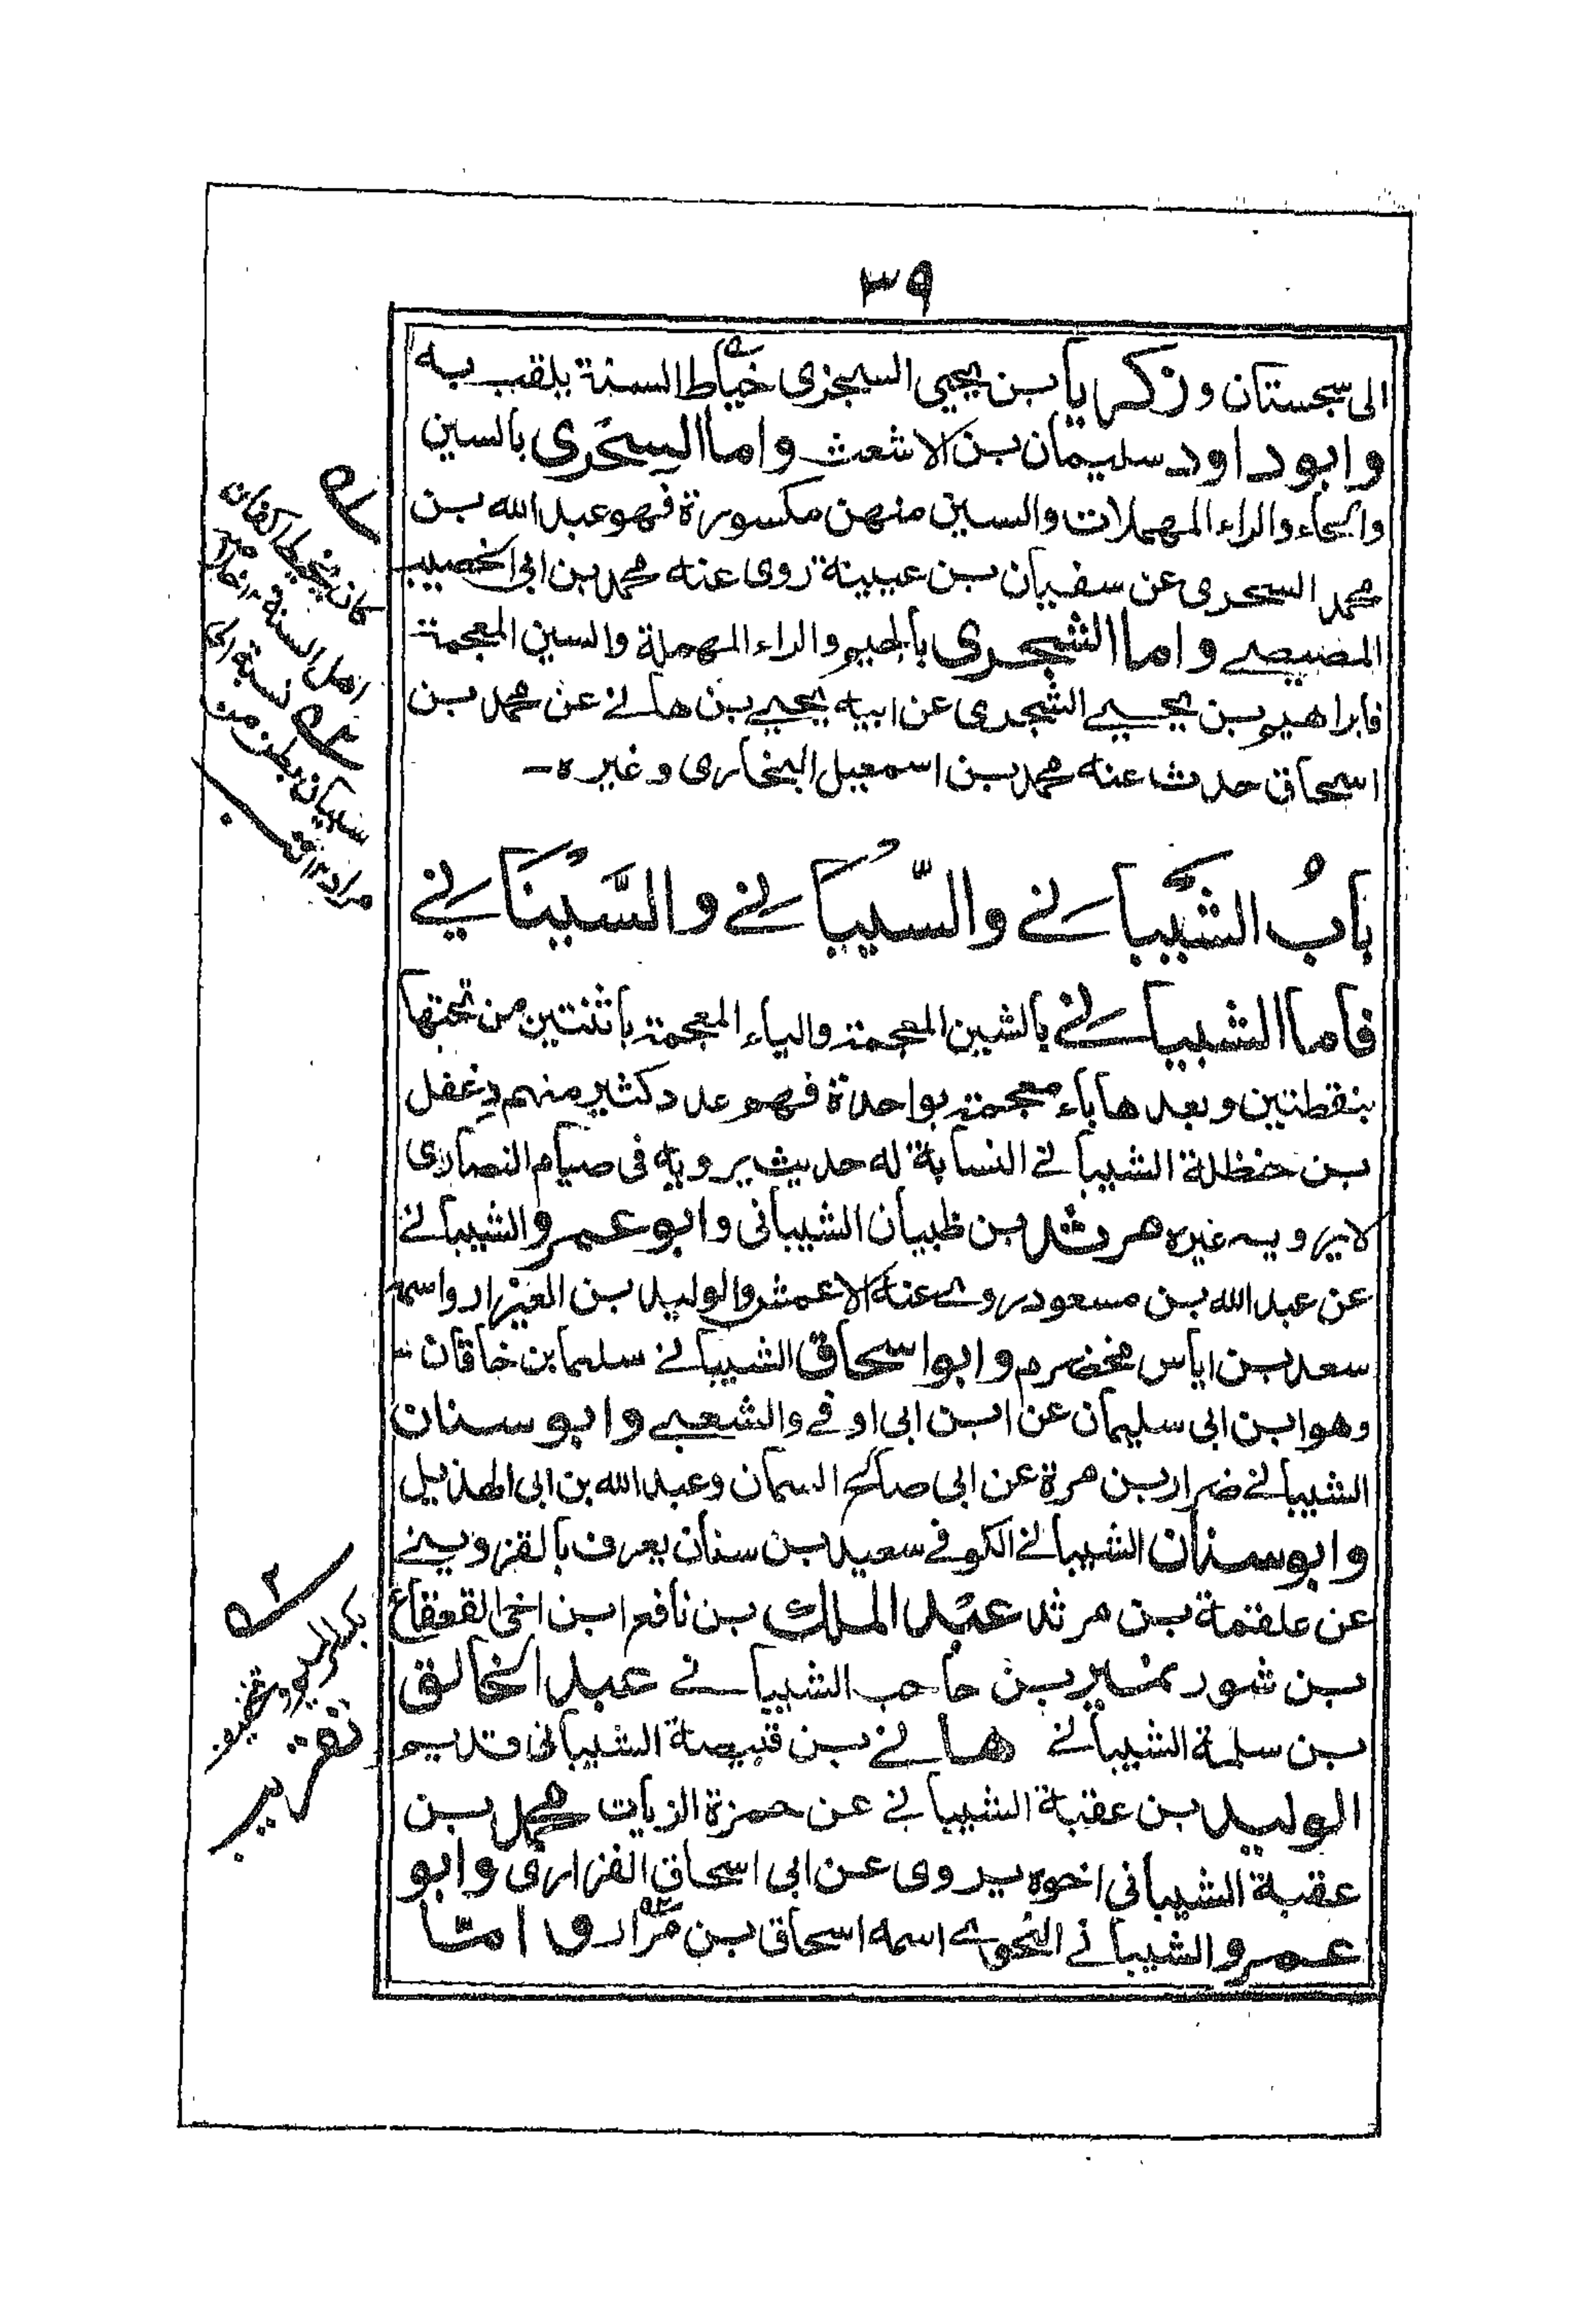 ٣٩
الى سجستان وزكريا بن يحيى السجزى خياط السنة يلقب به
وابوداود سليمان بن الاشعث واما السِحَرى بالسين
والحاء والراء المهملات والسين منهن مكسورة فهو عبد الله بن
محمد السحرى عن سفيان بن عيينة روى عنه محمد بن ابى الخصيب
المصيصے واما الشجرى بالجيم والراء المهملة والسين المعجمة
فابراهيم بن يحيے الشجرى عن ابيه يحيے بن هانے عن محمد بن
اسحاق حدث عنه محمد بن اسمعيل البخارى وغيره ـ
بابُ الشَّيبانے والسّيبَانے والسَّيْنَانے
فاما الشيبانے بالشين المعجمة والياء المعجمة باثنتين من تحتها
بنقطتين وبعدها باء معجمة بواحدة فهو عدد كثير منهم دغفل
بن حنظلة الشيبانے النسابة له حديث يرويه فى صيام النصارى
لايرويه غيره مرثد بن ظبيان الشيبانى وابو عمرو الشيبانے
عن عبد الله بن مسعود روى عنه الاعمش والوليد بن العيزار واسمه
سعد بن اياس مخضرم وابو اسحاق الشيبانے سليمان بن خاقان
وهو ابن ابى سليمان عن ابن ابى اوفے والشعبے وابو سنان
الشيبانے ضرار بن مرة عن ابى صالح السمان وعبد الله بن ابى الهذيل
وابوسنان الشيبانے الكوفے سعيد بن سنان يعرف بالقزوينے
عن علقمة بن مرثد عبد الملك بن نافع ابن اخى القعقاع
بن شور نمير بن حاجب الشيبانے عبد الخالق
بن سلمة الشيبانے هانے بن قبيصة الشيبانى قديم
الوليد بن عقبة الشيبانے عن حمزة الزيات محمد بن
عقبة الشيبانى اخوه يروى عن ابى اسحاق الفزارى وابو
عمرو الشيبانے النحوى اسمه اسحاق بن مرار و امّا
كان يخيط اكفان
اهل السنة
نسبة الى
شيبان بطن من
تقريب